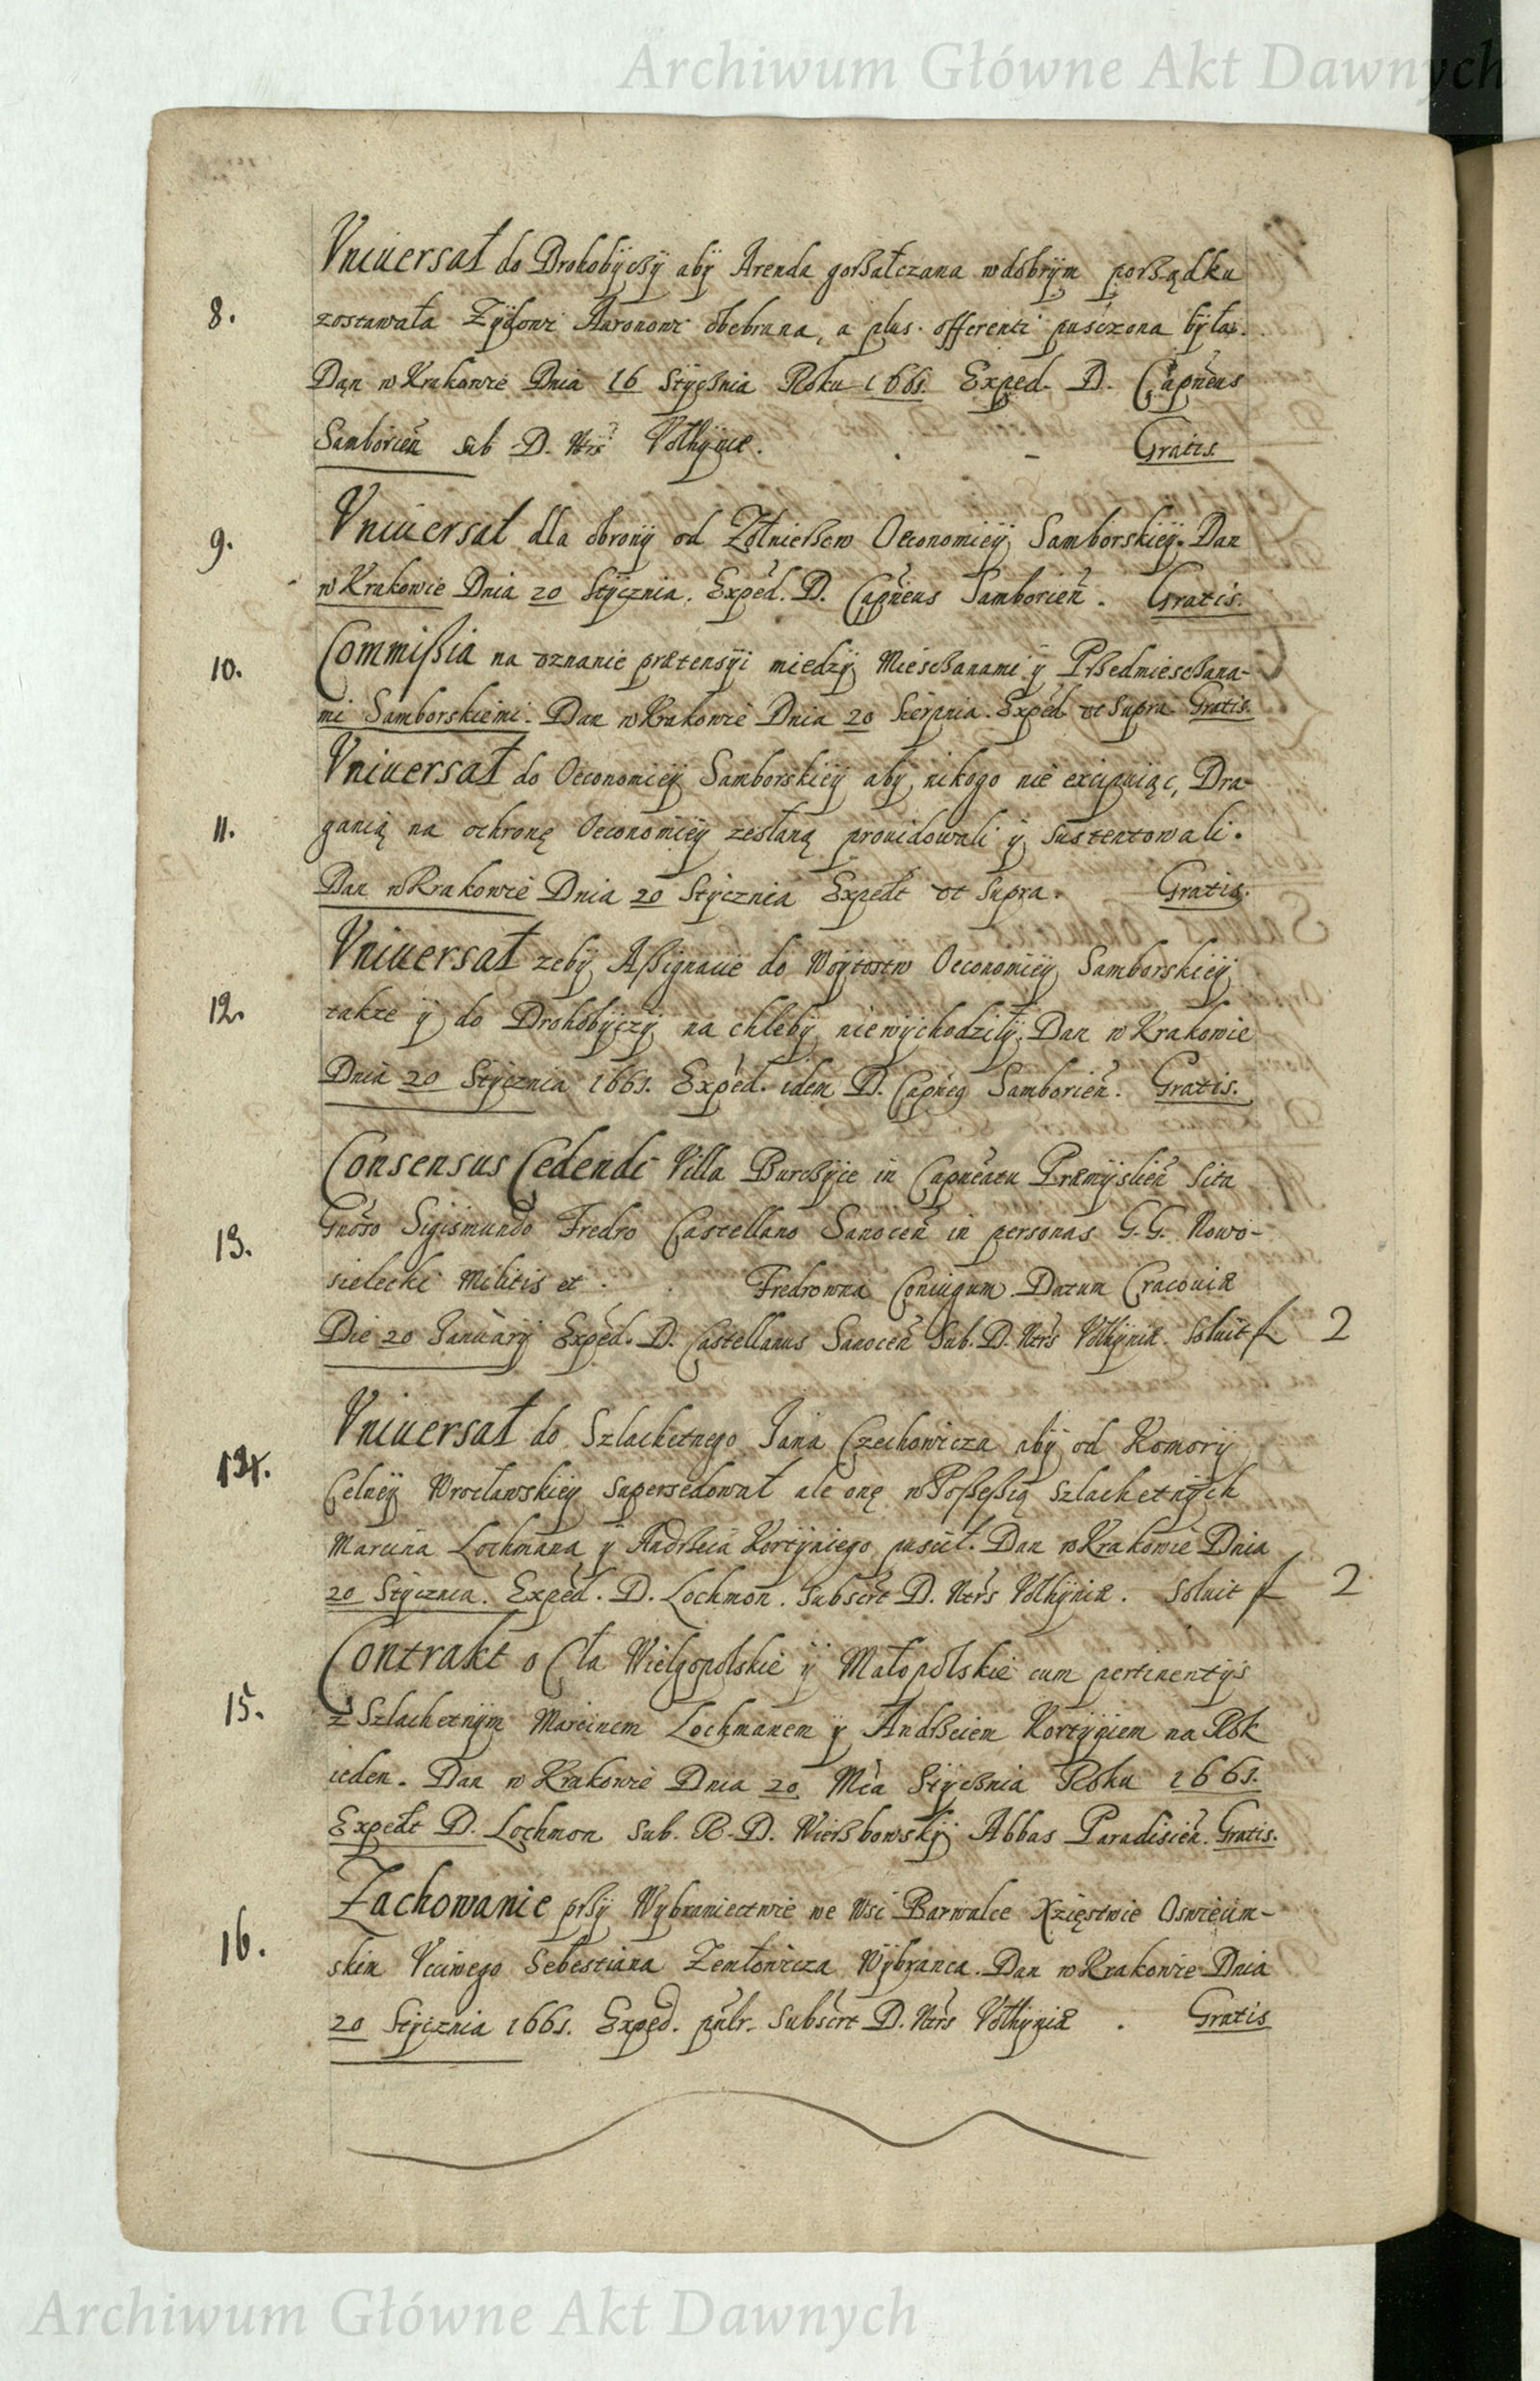 Archiwum Główne Akt Dawnych
Vniuersał do Drohobyczy aby Arenda gorzałczana w dobrym porządku
8.
zostawała Zydowi Aaronowi odebrana, a plus offerenti pusczona była.
Dan w Krakowie Dnia 16 Stycznia Roku 1661. Exped. D. Capneus
Samborien sub D. Ntrs Volhyniæ. Gratis
9.
Vniuersał dla obrony od Zołnierzow Oeconomiey Samborskiey. Dan
w Krakowie Dnia 20 Stycznia. Exped. D. Capneus Samborien. Gratis.
10.
Commissia na vznanie prætensyi miedzy Miesczanami y Przedmiesczana-
mi Samborskiemi. Dan w Krakowie Dnia 20 Sierpnia. Exped vt Supra Gratis.
Vniuersał do Oeconomiey Samborskiey aby nikogo nie excipuiąc, Dra-
11.
ganią na ochronę Oeconomiey zesłaną prouidowali y sustentowali.
Dan w Krakowie Dnia 20 Stycznia Expedt vt Supra. Gratis.
Vniuersał zeby Assignacie do Woytostw Oeconomiey Samborskiey
12.
takze y do Drohobyczy na chleby niewychodziły. Dan w Krakowie
Dnia 20 Stycznia 1661. Exped. idem D. Capneg Samborien. Gratis.
Consensus Cedendi Villa Burczyce in Capneatu Præmyslien sita
13.
Gnoso Sigismundo Fredro Castellano Sanocen in personas G. G. Nowo-
sielecki Militis et . . Fredrowna Coniugum. Datum Cracouiæ
Die 20 Januarij Exped. D. Castellanus Sanocen Sub. D. Ntrs Volhyniæ. Soluit f 2
Vniuersał do Szlachetnego Jana Czechowicza aby od Komory
14.
Celney Wrocławskiey supersedował ale onę w Possessią szlachetnych
Marcina Lochmana y Andrzeia Kortyniego puscił. Dan w Krakowie Dnia
20 Stycznia. Exped. D. Lochmon. Subscrt D. Ntrs Volhyniæ. Soluit f 2
Contrakt o Cła Wielgopolskie y Małopolskie cum pertinentijs
15.
z Szlachetnym Marcinem Lochmanem y Andrzeiem Kortyniem na Rok
ieden. Dan w Krakowie Dnia 20 Mca Stycznia Roku 1661.
Expedt D. Lochmon Sub. R. D. Wierzbowskij Abbas Paradisien. Gratis.
Zachowanie przy Wybraniectwie we Wsi Barwalce Xzięstwie Oswiecim-
16.
skim Vcciwego Sebestiana Zemłowicza Wybranca. Dan w Krakowie Dnia
20 Stycznia 1661. Exped. pnlr. Subscrt D. Ntrs Volhyniæ . Gratis
Archiwum Główne Akt Dawnych